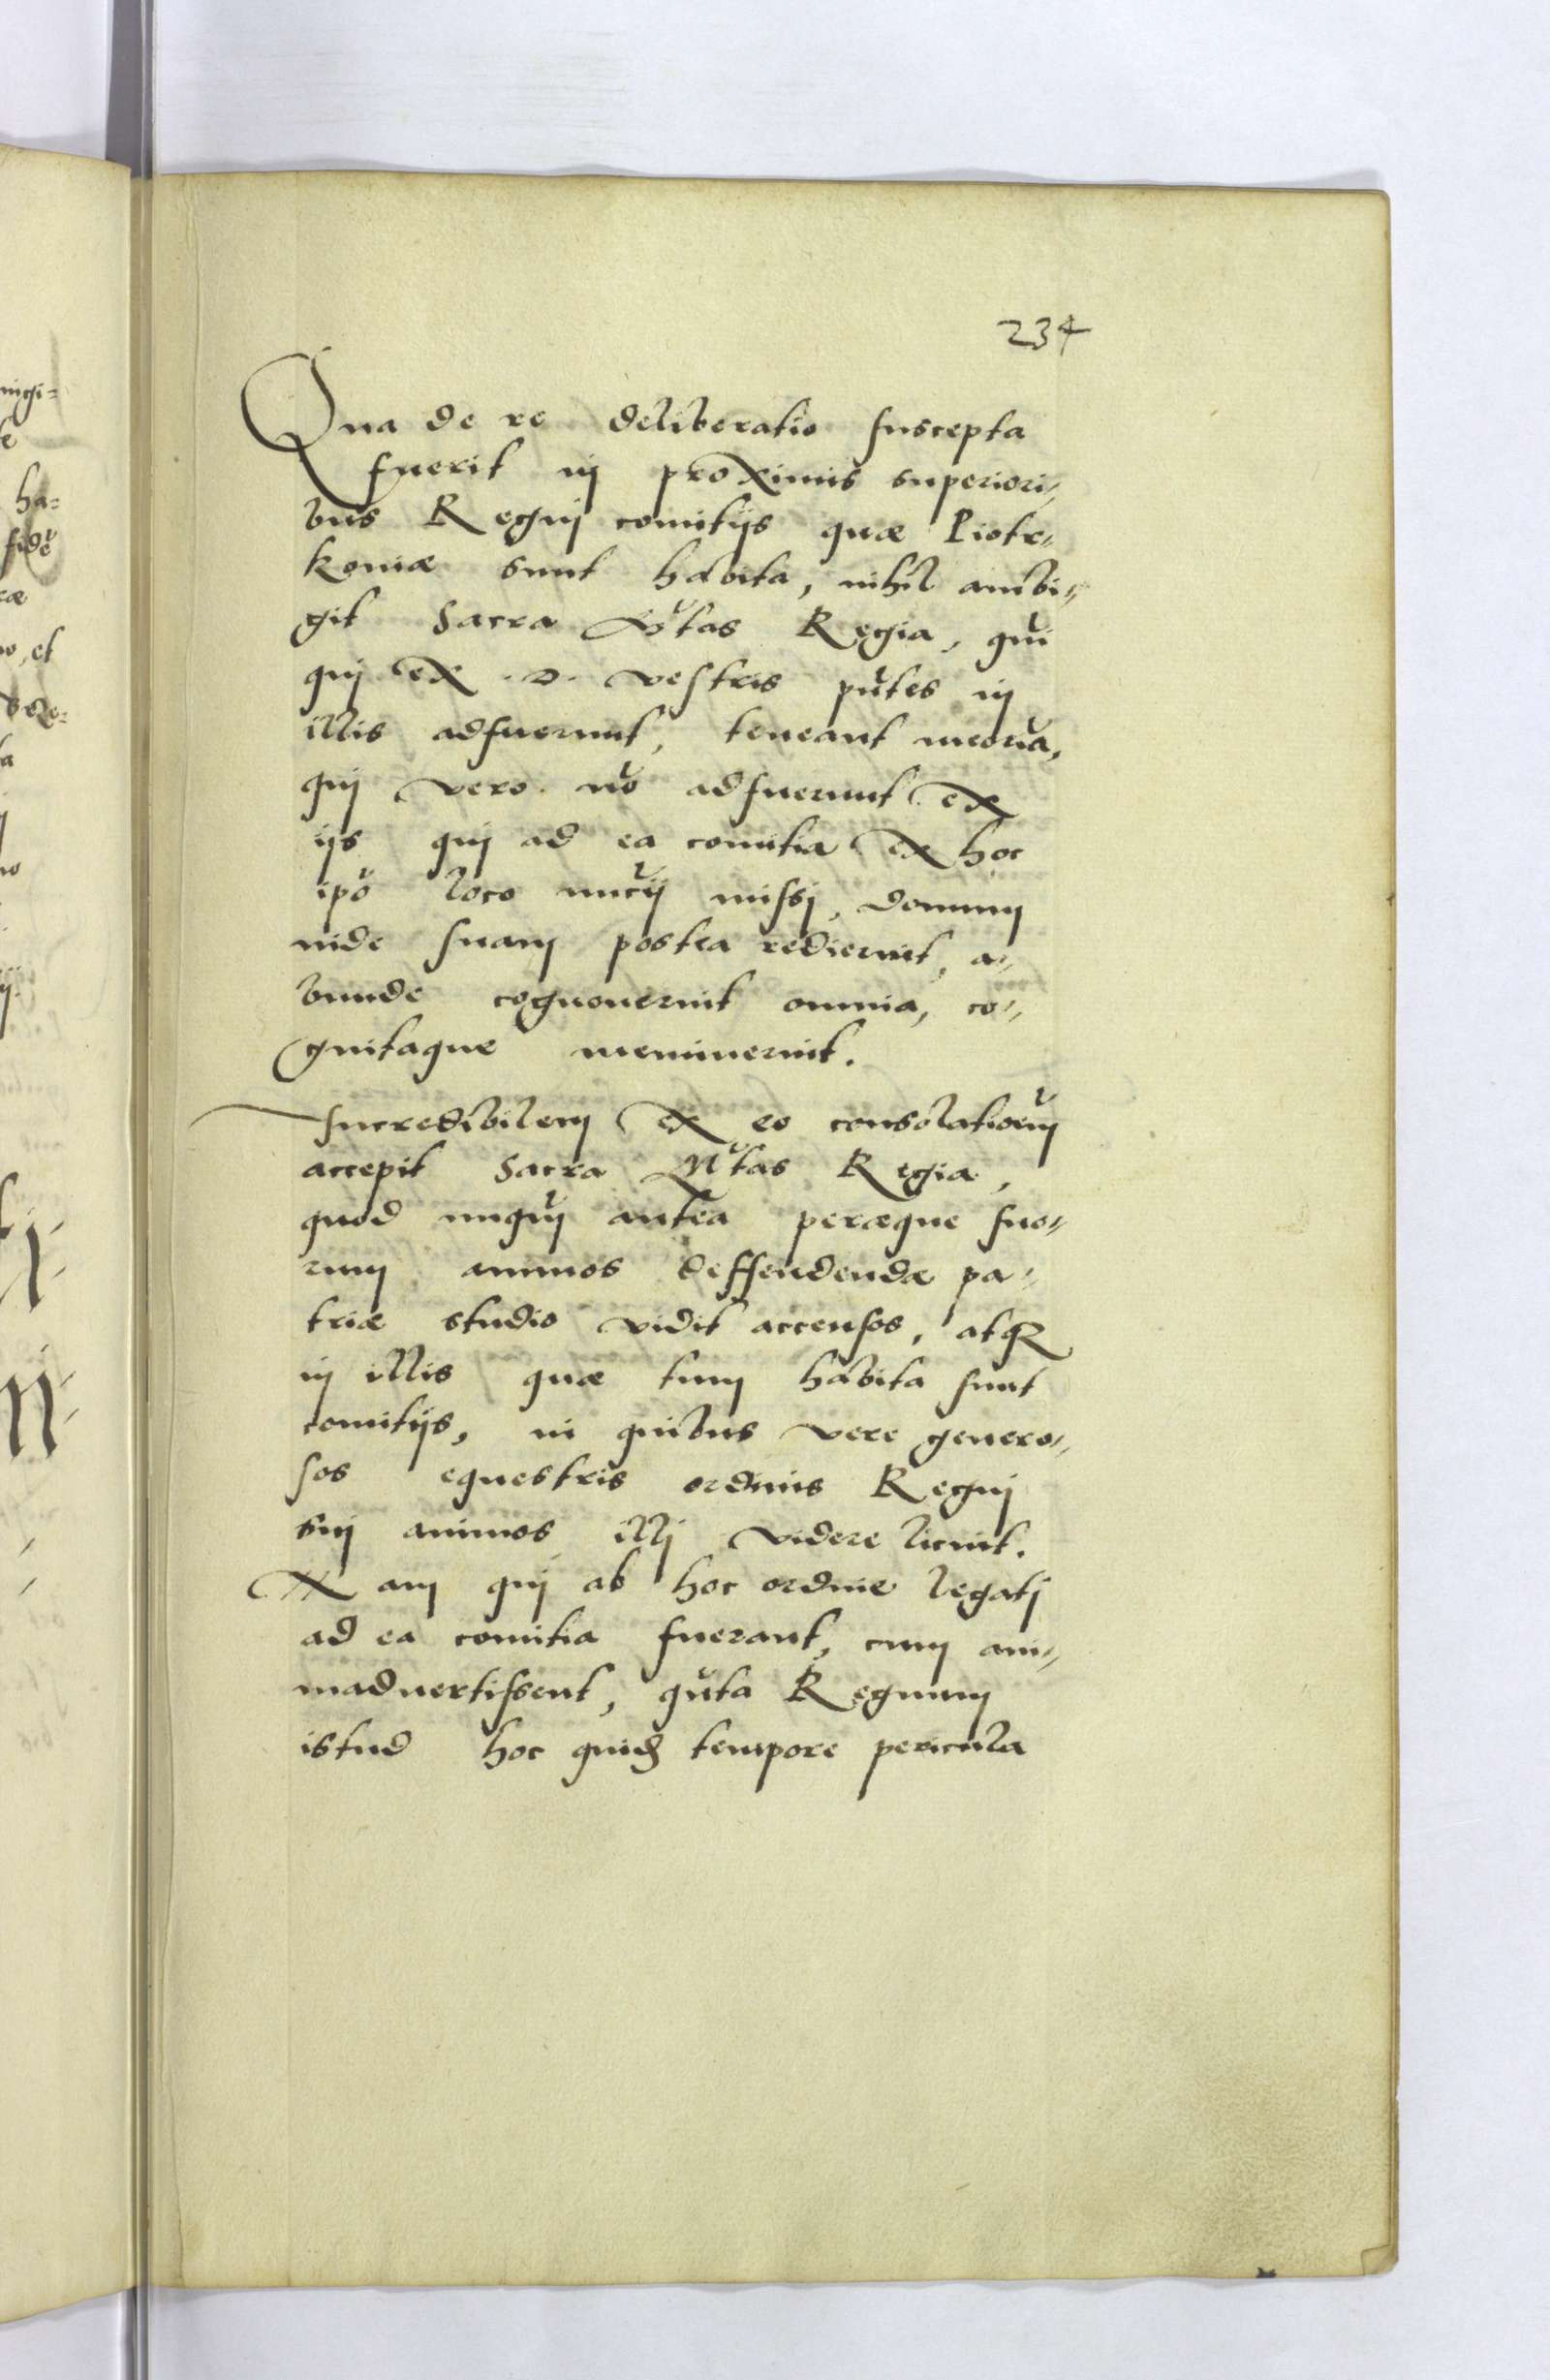 234
Qua de re deliberatio suscepta
fuerit in proximis superiori-
bus Regni comitijs quæ Piotr-
koviæ sunt habita, nihil ambi-
git Sacra Mtas Regia, qui
qui ex .D. vestris pñtes in
illis adfuerunt, teneant meoria,
qui vero nõ adfuerunt ex
ijs qui ad ea comitia ex hoc
ipõ loco nucij missi, domum
inde suam postea redierunt, a-
bunde cognoverunt omnia, co-
gnitaque meminerint.
Incredibilem ex eo consolationem
accepit Sacra Mtas Regia,
quod nunquã antea peræque suo-
rum animos deffendendæ pa-
triæ studio vidit accensos, atq
in illis quæ tum habita sunt
comitijs, in quibus vere genero-
sos equestris ordinis Regni
sui animos illi videre licuit.
Nam qui ab hoc ordine legati
ad ea comitia fuerant, cum ani-
madvertissent, quãta Regnum
istud hoc quidẽ tempore pericula
ha-
fidẽ
o, et